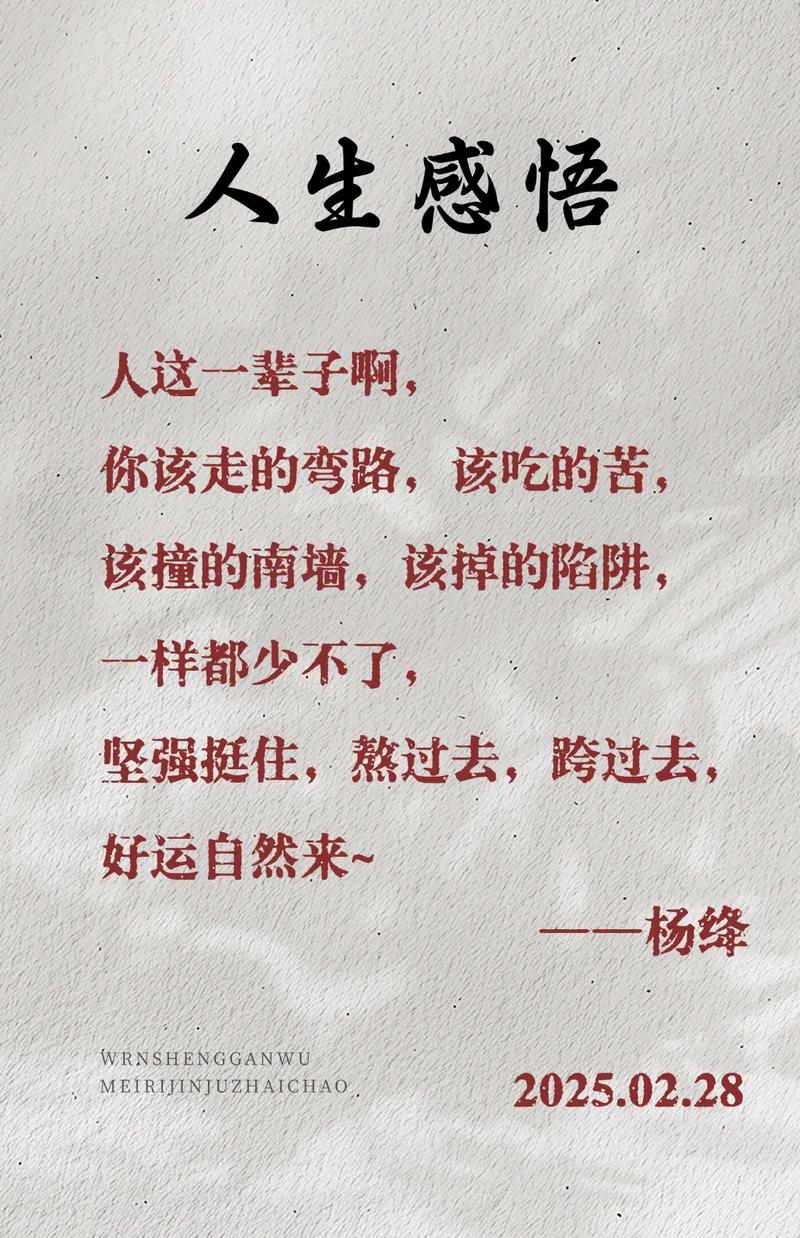 人生感悟
人这一辈子啊，
你该走的弯路，该吃的苦，
该撞的南墙，该掉的陷阱，
一样都少不了，
坚强挺住，熬过去，跨过去，
好运自然来~
——杨绛
WRNSHENGGANWU
MEIRIJINJUZHAICHAO
2025.02.28